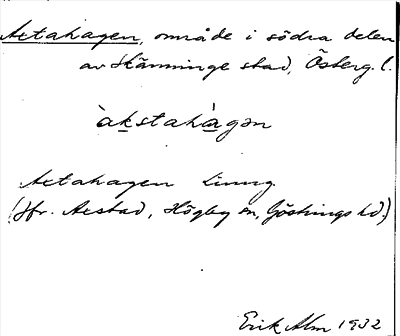 Axtahagen, område i södra delen
av Skänninge stad, Österg. l.
àkstahàgən
Axtahagen Linng.
(Jfr. Axstad, Högby sn, Göstrings hd.)
Erik Alm 1932